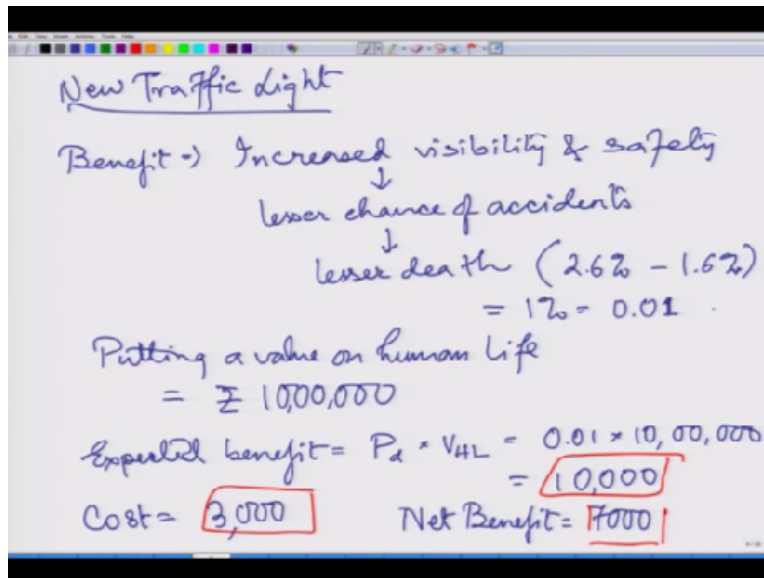 New Traffic Light
Benefit → Increased visibility & safety
↓
lesser chance of accidents
↓
lesser death (2.6% - 1.6%)
= 1% - 0.01
Putting a value on human life
= ₹ 10,00,000
Expected benefit = Pd * VHL = 0.01 * 10,00,000
= 10,000
Cost = 3,000 Net Benefit = 7000